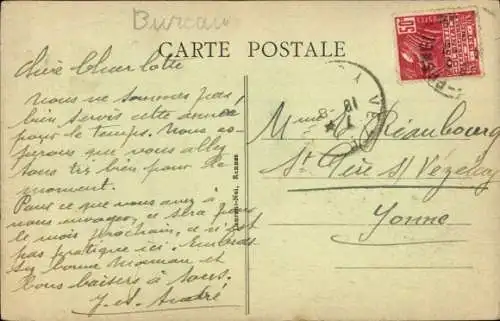 Bureau
CARTE POSTALE
Chère Charlotte
Nous ne sommes pas
bien servis cette année
pour le temps. Nous es-
perons que vous allez
tous très bien pour le
moment.
Pour ce que vous avez à
nous envoyer, ce sera pour
le mois prochain, ce n'est
pas pratique ici. Embras
sez bonne Maman et
bons baisers à tous.
J. et André
Rennes
50c
POSTES
Mme Réaubourg
St Père s/ Vézelay
Yonne